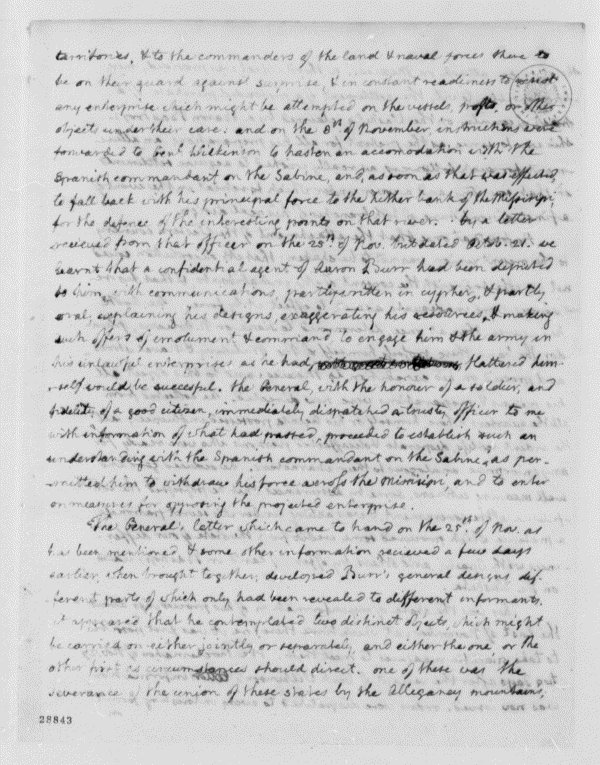 territories, & to the commanders of the land & naval forces there to
be on their guard against surprise, & in constant readiness to resist
any enterprise which might be attempted on the vessels, posts, or other
objects under their care. and on the 8th of November, instructions were
forwarded to Genl Wilkinson to hasten an accomodation with the
Spanish commandant on the Sabine, and, as soon as that was effected,
to fall back with his principal force to the hither bank of the Missisipi,
for the defence of the interesting points on that river. by a letter
recieved from that officer on the 25th of Nov. but dated Octob. 21. we
learnt that a confidential agent of Aaron Burr had been deputed
to him, with communications, partly written in cypher, & partly
oral, explaining his designs, exaggerating his resources, & making
such offers of emolument & command to engage him & the army in
his unlawful enterprises as he had flattered him-
self would be succesful. the General, with the honour of a soldier, and
fidelity of a good citizen, immediately dispatched a trusty officer to me
with information of what had passed, proceeded to establish such an
understanding with the Spanish commandant on the Sabine, as per-
mitted him to withdraw his force across the Missisipi, and to enter
on measures for opposing the projected enterprise.
The General's letter which came to hand on the 25th. of Nov. as
has been mentioned, & some other information recieved a few days
earlier, when brought together, developed Burr's general designs, dif-
ferent parts of which only had been revealed to different informants.
it appeared that he contemplated two distinct objects, which might
be carried on either jointly or separately, and either the one, or the
other first, as circumstances should direct. one of these was the
severance of the union of these states by the Alleganey mountains,
28843